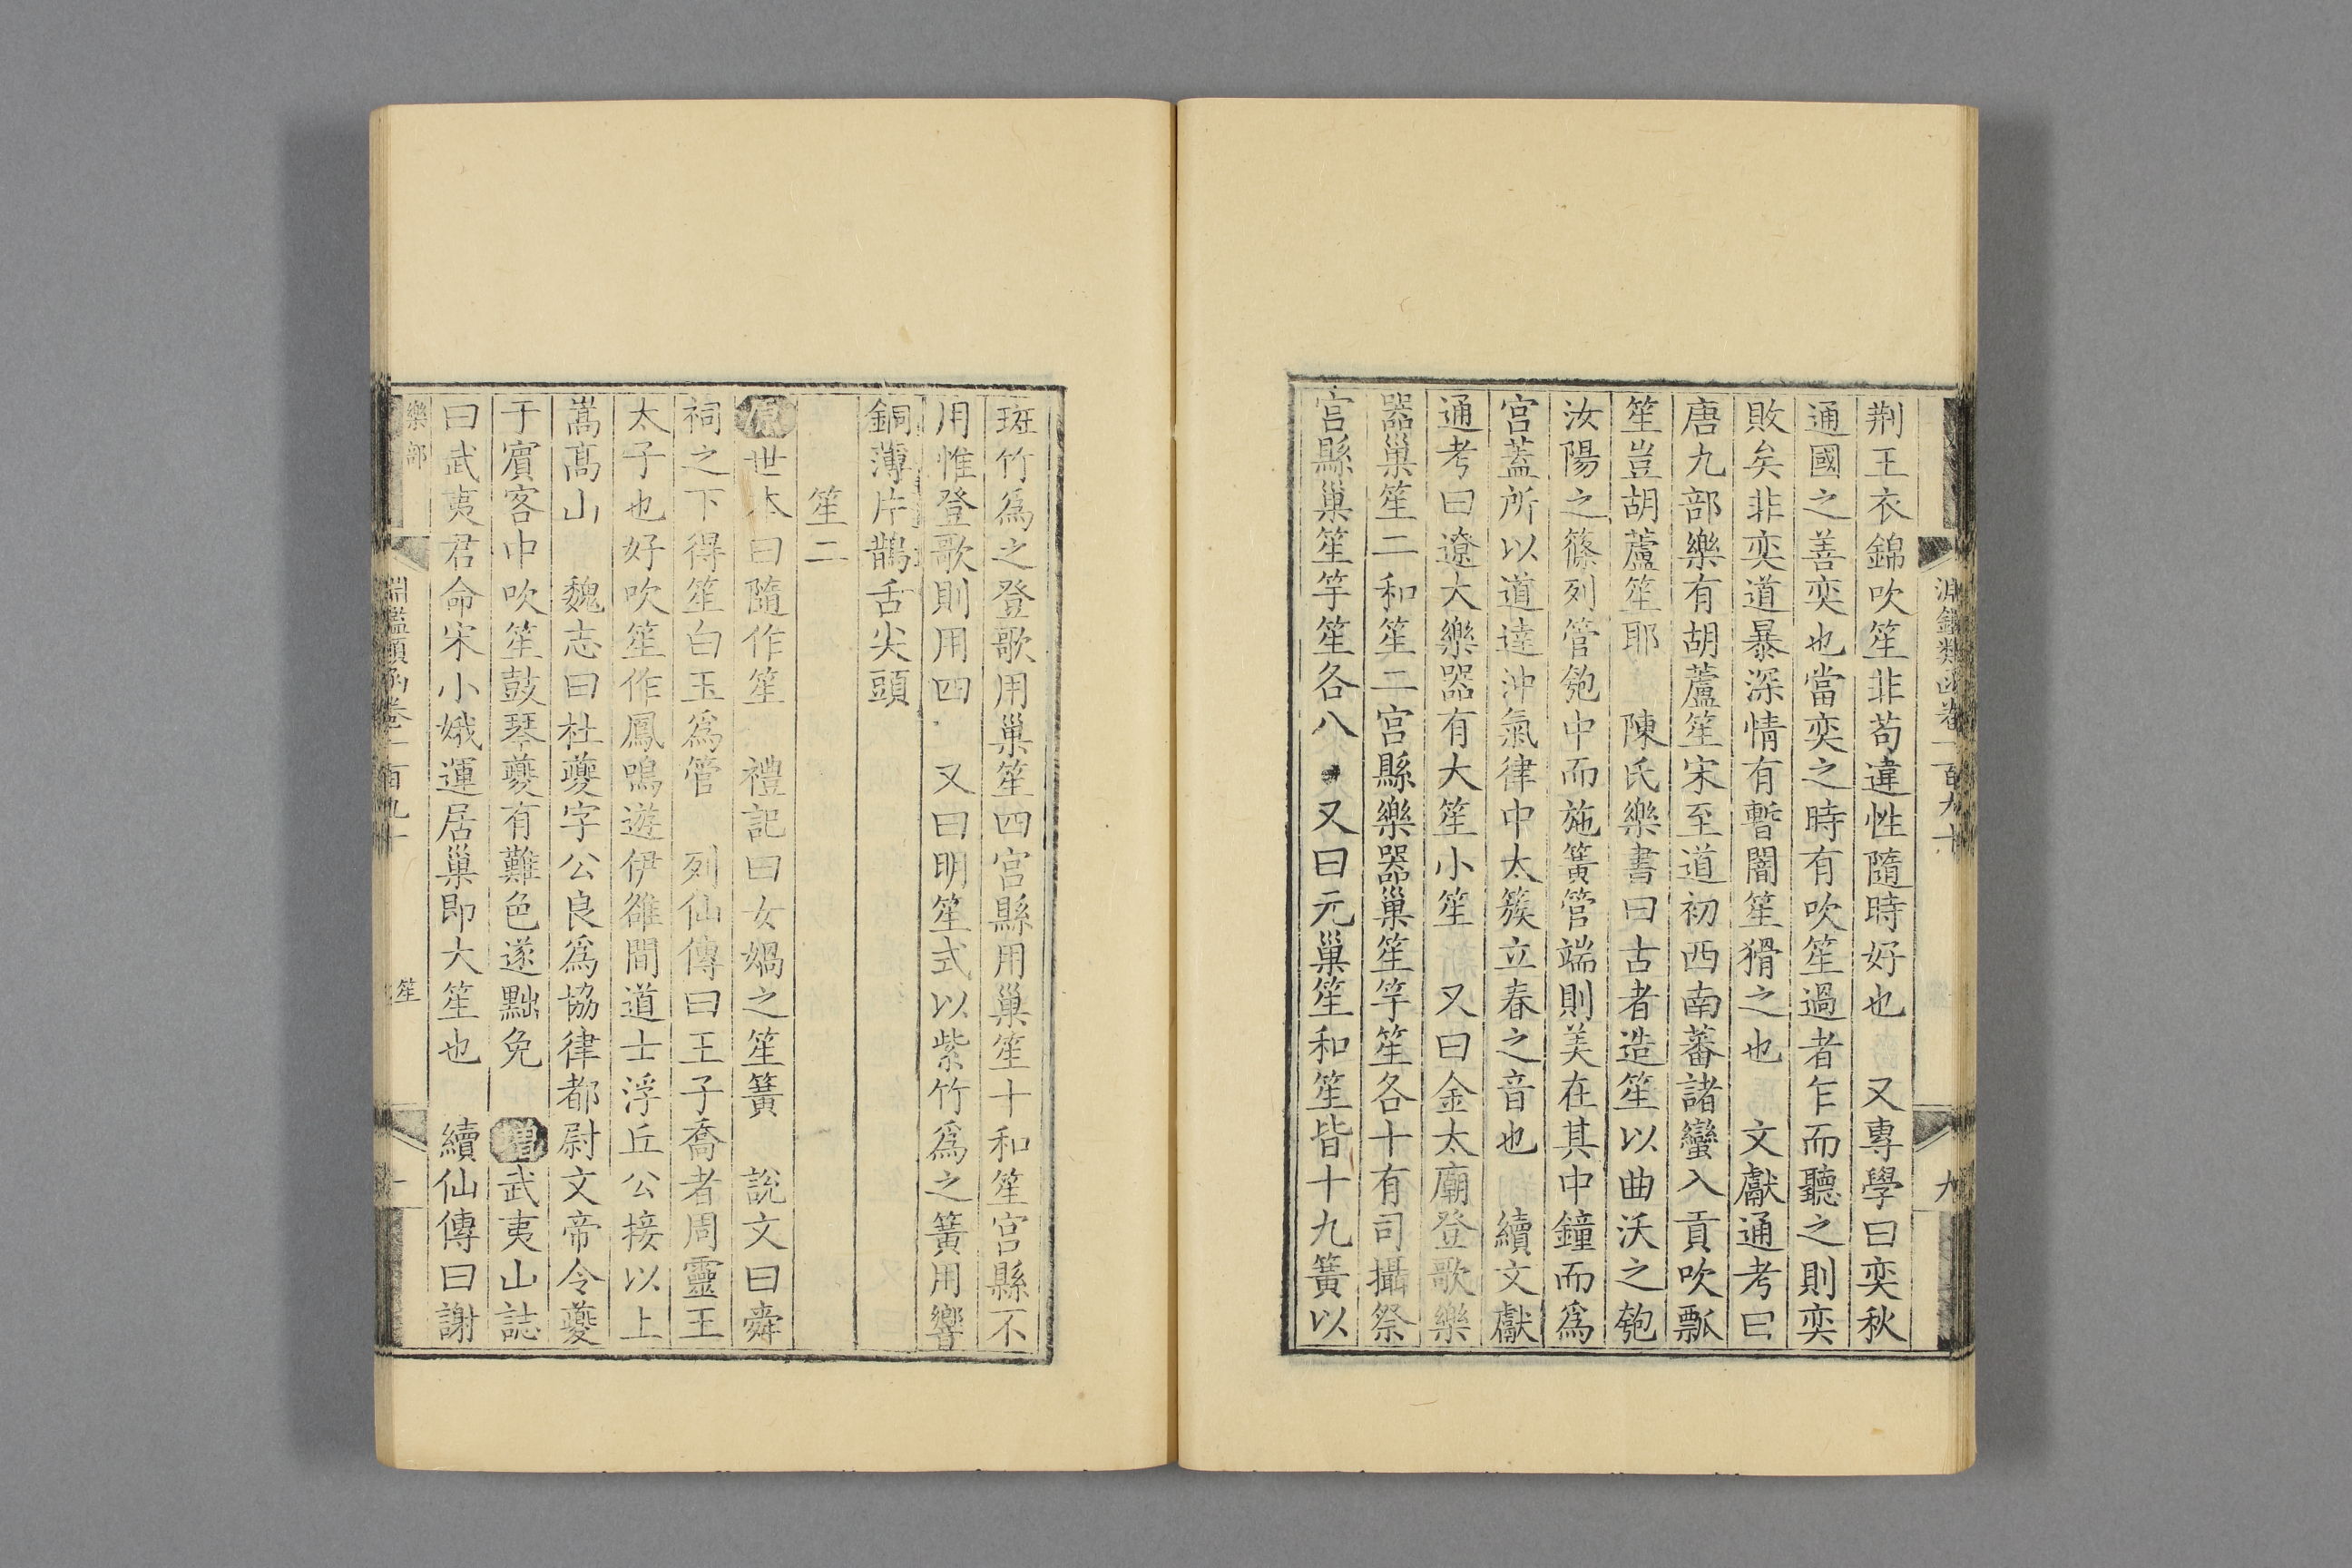 淵鑑類函卷一百九十
九
荆王衣錦吹笙非苟違性隨時好也　又專學曰奕秋
通國之善奕也當奕之時有吹笙過者乍而聽之則奕
敗矣非奕道暴深情有暫闇笙猾之也　文獻通考曰
唐九部樂有胡蘆笙宋至道初西南蕃諸蠻入貢吹瓢
笙豈胡蘆笙耶　陳氏樂書曰古者造笙以曲沃之匏
汝陽之篠列管匏中而施簧管端則美在其中鐘而爲
宮蓋所以道達沖氣律中太簇立春之音也　續文獻
通考曰遼大樂器有大笙小笙　又曰金太廟登歌樂
器巢笙二和笙二宮縣樂器巢笙竽笙各十有司攝祭
宮縣巢笙竽笙各八　又曰元巢笙和笙皆十九簧以
斑竹爲之登歌用巢笙四宮縣用巢笙十和笙宮縣不
用惟登歌則用四　又曰明笙式以紫竹爲之簧用響
銅薄片鵲舌尖頭
笙二
原世本曰隨作笙　禮記曰女媧之笙簧　說文曰舜
祠之下得笙白玉爲管　列仙傳曰王子喬者周靈王
太子也好吹笙作鳳鳴遊伊雒間道士浮丘公接以上
嵩高山　魏志曰杜夔字公良爲協律都尉文帝令夔
于賓客中吹笙鼓琴夔有難色遂黜免　增武夷山誌
曰武夷君命宋小娥運居巢即大笙也　續仙傳曰謝
樂部
笙
淵鑑類函卷一百九十